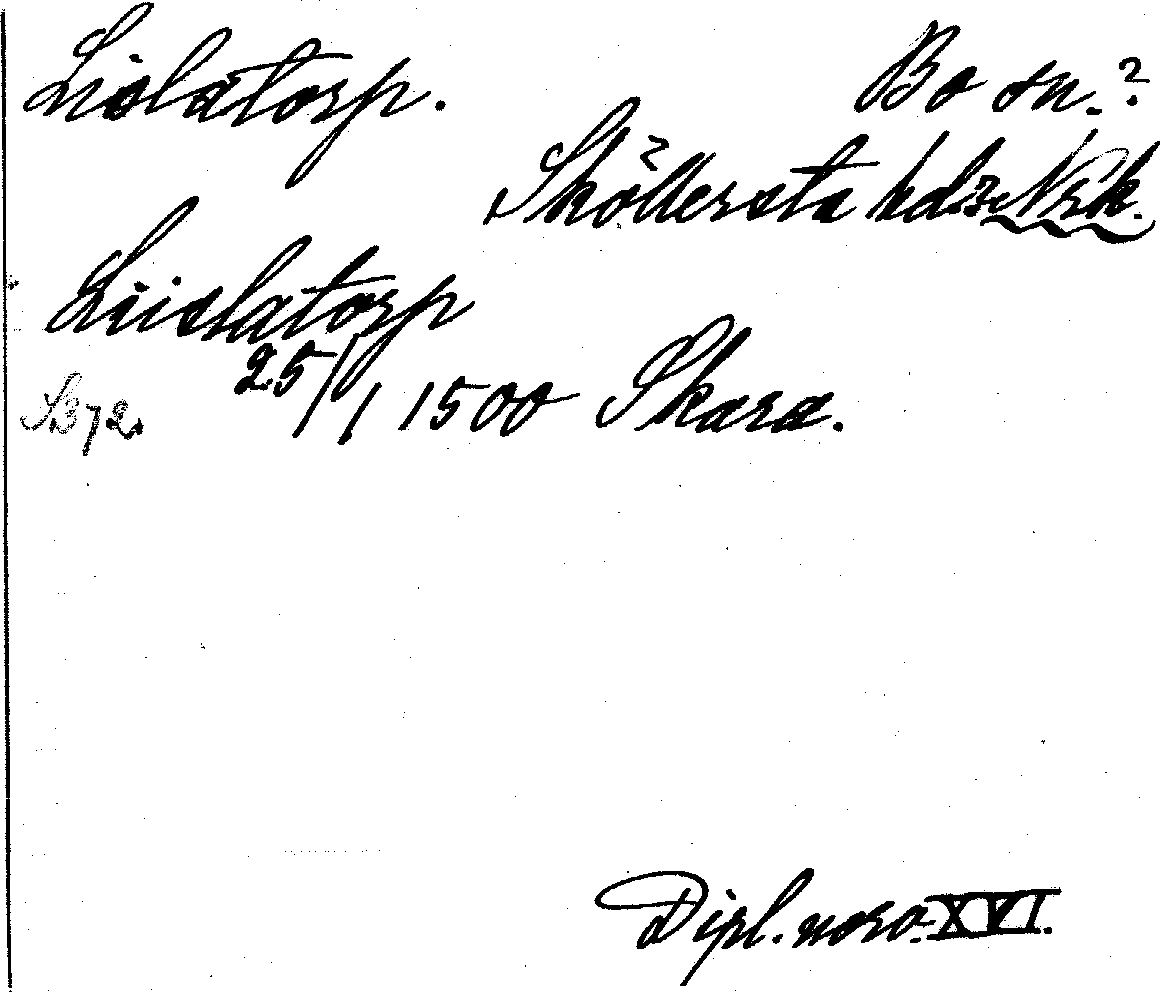 Lislatorp. Bo sn.?
Sköllersta hd? Nrk.
Liislatorp
25/1 1500 Skara.
S. 372.
Dipl. norv. XVI.